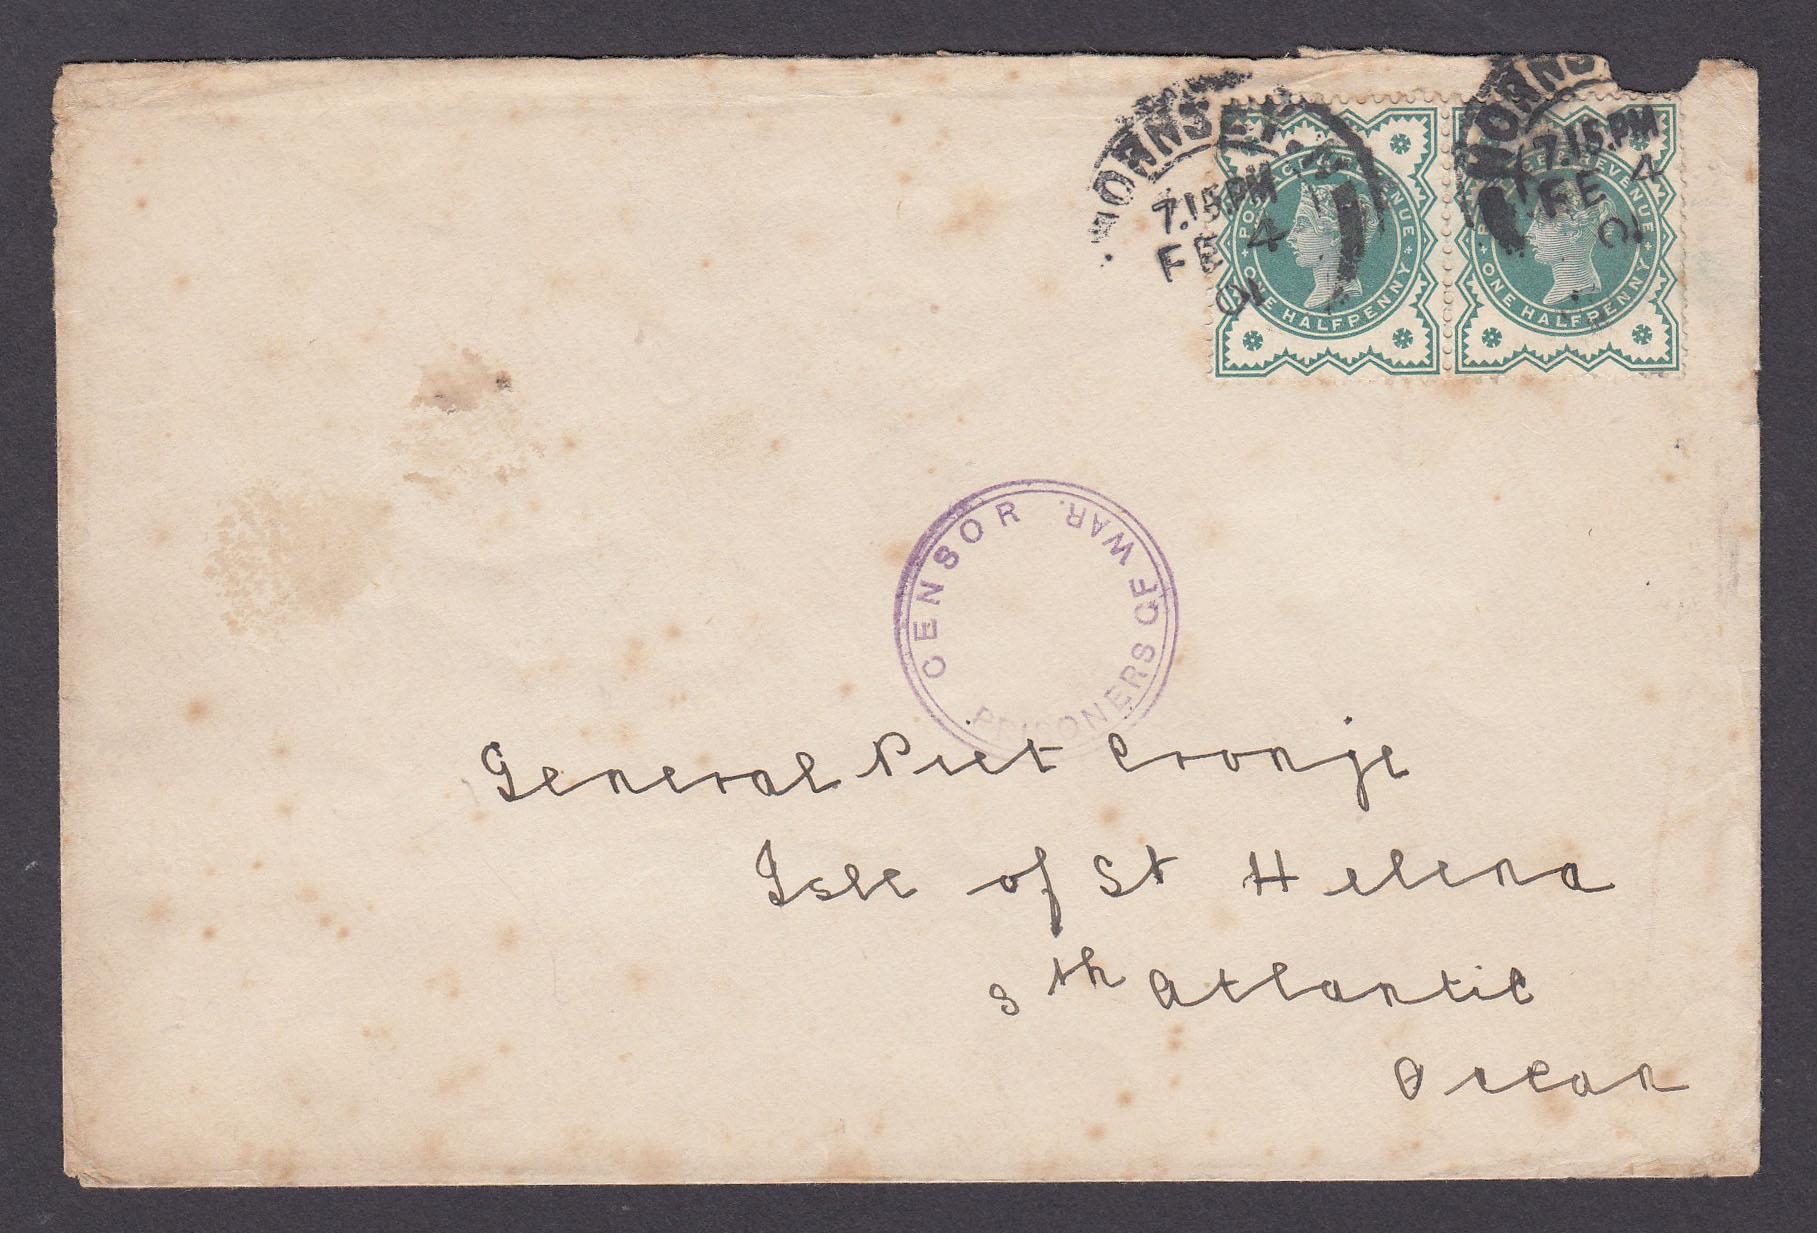 HORNSEY
7.15.PM
FE 4
01
HORNS
7.15.PM
FE 4
01
POSTAGE & REVENUE
ONE HALFPENNY
POSTAGE & REVENUE
ONE HALFPENNY
CENSOR
PRISONERS OF WAR.
General Piet Cronje
Isle of St Helena
Sth Atlantic
Ocean